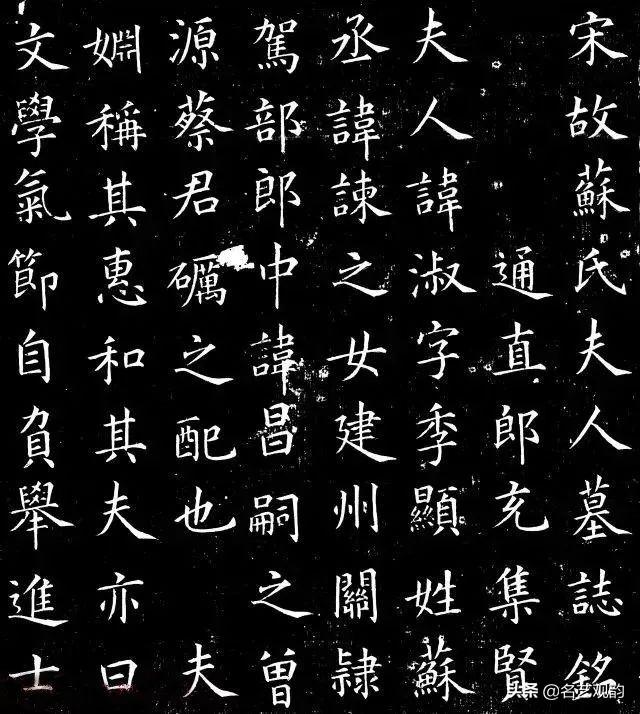 宋故蘇氏夫人墓誌銘
通直郎充集賢
夫人諱淑字季顯姓蘇
丞諱諫之女建州關隸
駕部郎中諱昌嗣之曾
源蔡君礪之配也 夫
婣稱其惠和其夫亦曰
文學氣節自負舉進士
头条 @名艺观韵